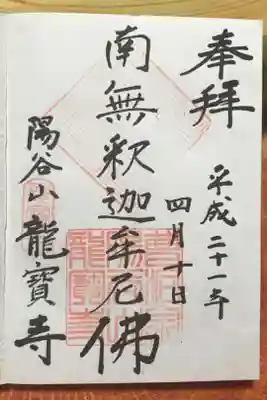 奉拝
平成二十一年
四月十日
南無釈迦牟尼佛
陽谷山龍寶寺